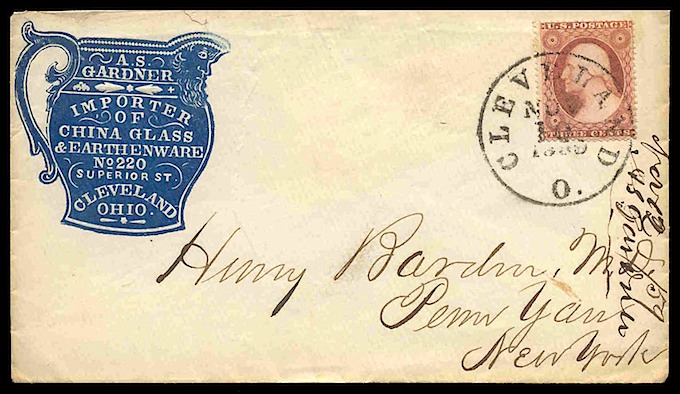 A.S.
GARDNER
IMPORTER
OF
CHINA GLASS
& EARTHENWARE
No 220
SUPERIOR ST.
CLEVELAND
OHIO.
U.S. POSTAGE
THREE CENTS
CLEVELAND
NOV
1859
O.
Henry Bardin,
Penn Yan
New York